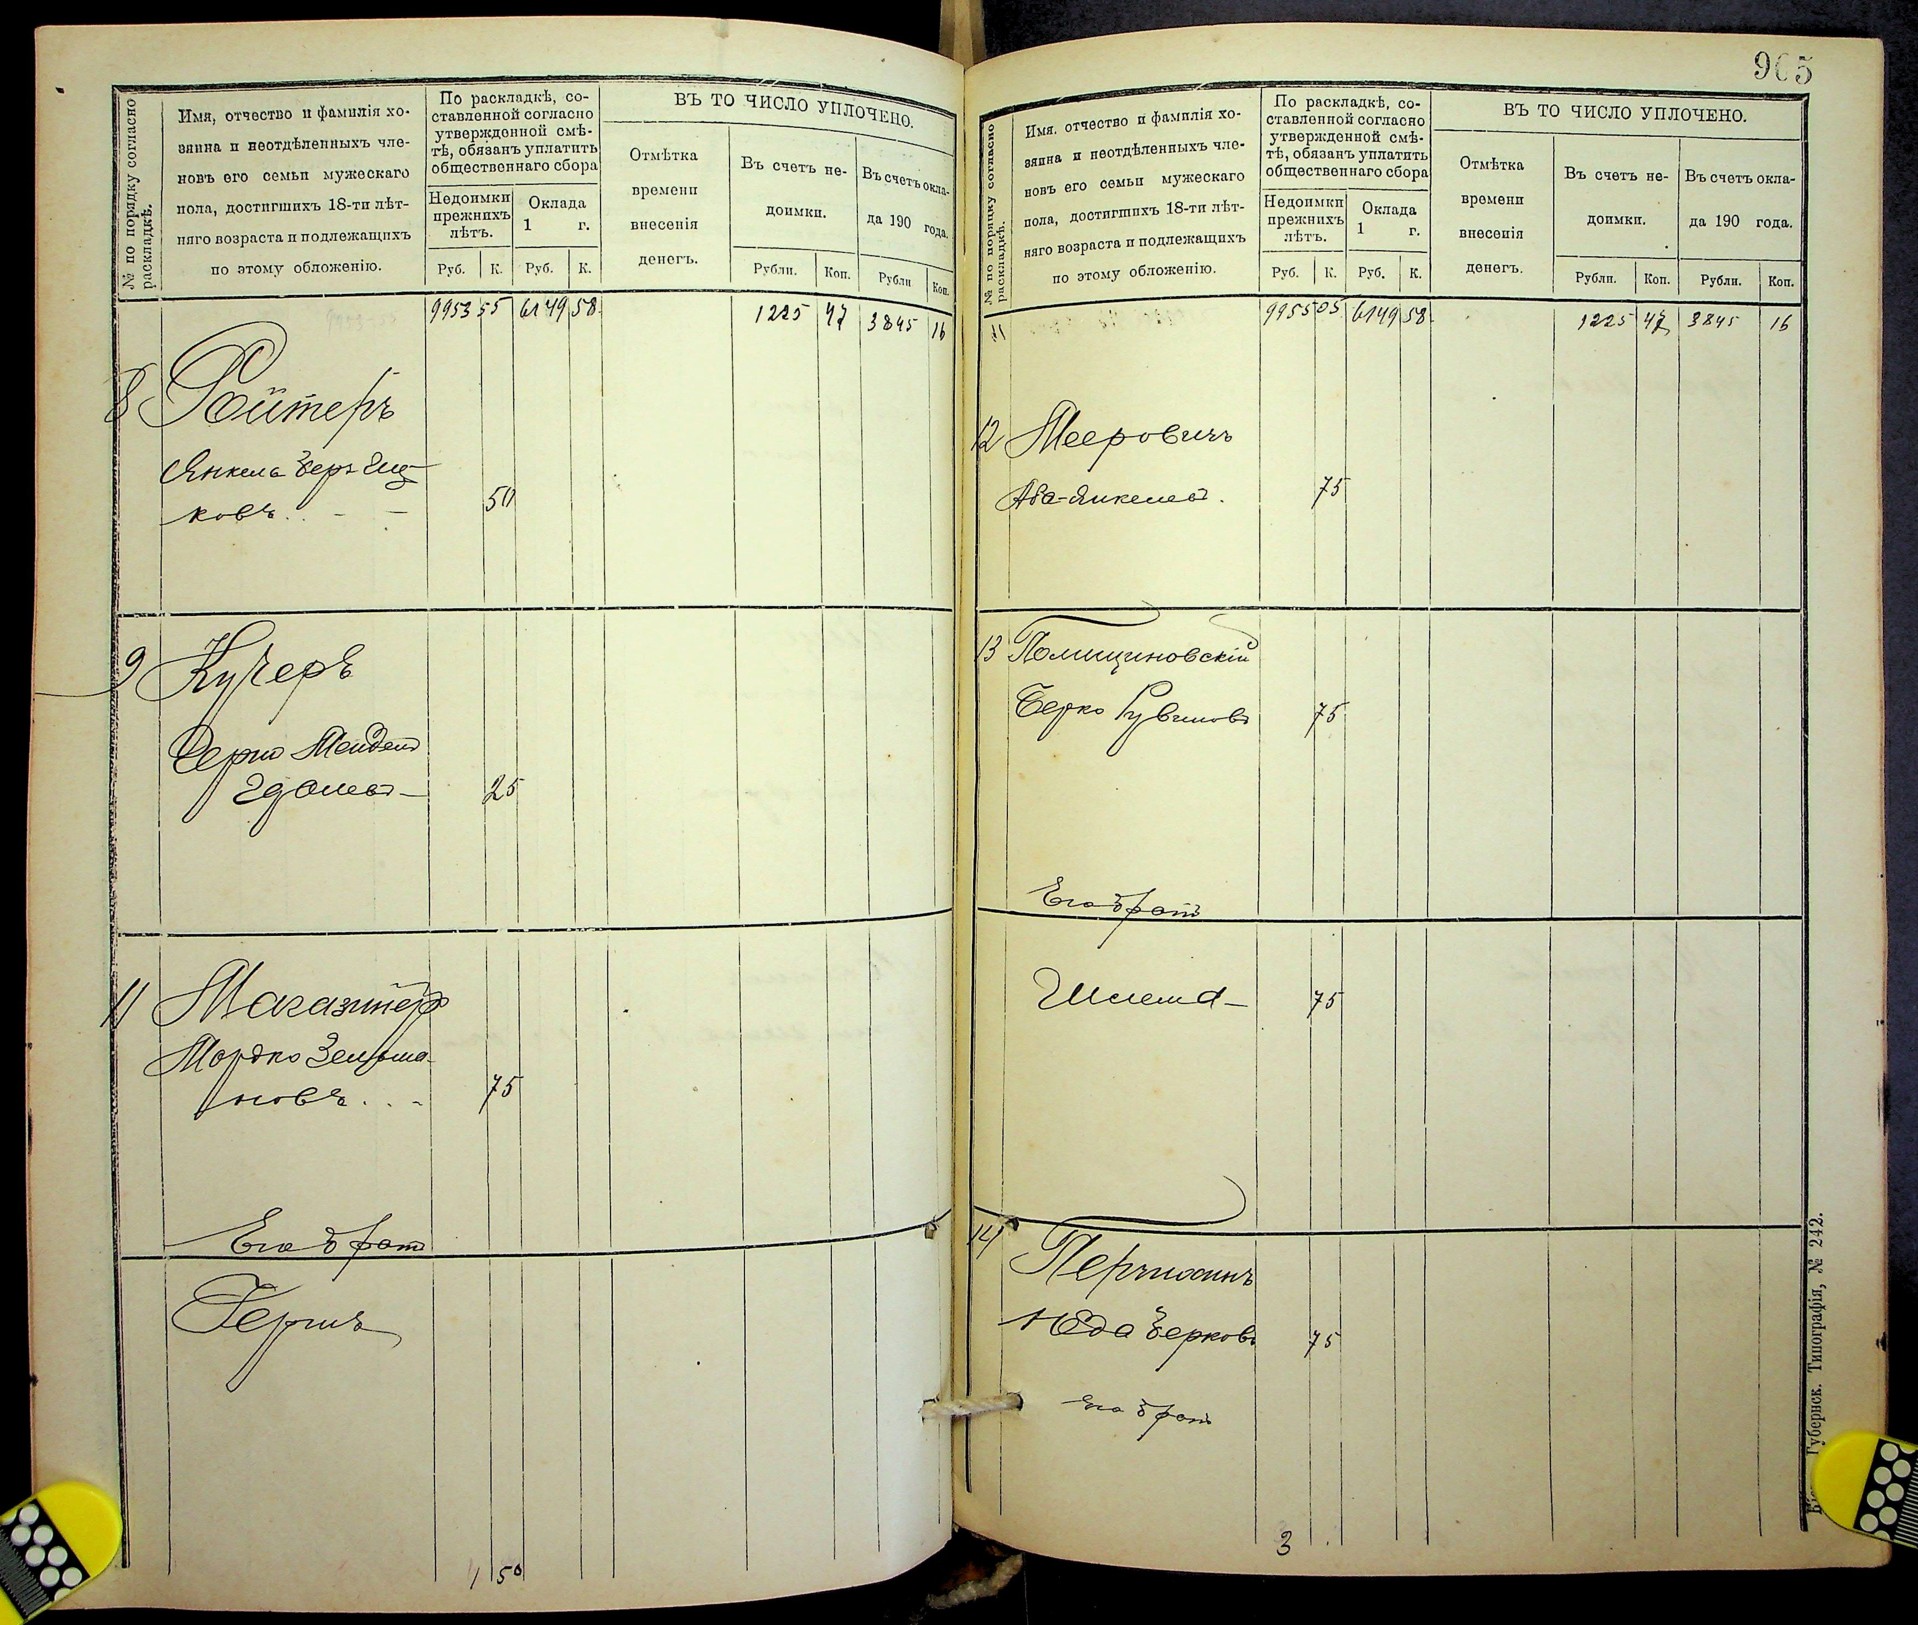 № по порядку согласно раскладкѣ.
Имя, отчество и фамилія хо-
зяина и неотдѣленныхъ чле-
новъ его семьи мужескаго
пола, достигшихъ 18-ти лѣт-
няго возраста и подлежащихъ
по этому обложенію.
По раскладкѣ, со-
ставленной согласно
утвержденной смѣ-
тѣ, обязанъ уплатить
общественнаго сбора
Недоимки
прежнихъ
лѣтъ.
Оклада
1 г.
Руб. К. Руб. К.
ВЪ ТО ЧИСЛО УПЛОЧЕНО.
Отмѣтка
времени
внесенія
денегъ.
Въ счетъ не-
доимки.
Въ счетъ окла-
да 190 года.
Рубли. Коп. Рубли Коп.
9953 55 6149 58 1225 47 3845 16
8 Ройтеръ
Янкель Беръ Ицъ
ковъ 50
9 Кучеръ
Герш Мендель
25
11 Магазинеръ
Мордко Зельма-
новъ 75
Его братъ
Гершъ
1 50
965
№ по порядку согласно раскладкѣ.
Имя, отчество и фамилія хо-
зяина и неотдѣленныхъ чле-
новъ его семьи мужескаго
пола, достигшихъ 18-ти лѣт-
няго возраста и подлежащихъ
по этому обложенію.
По раскладкѣ, со-
ставленной согласно
утвержденной смѣ-
тѣ, обязанъ уплатить
общественнаго сбора
Недоимки
прежнихъ
лѣтъ.
Оклада
1 г.
Руб. К. Руб. К.
ВЪ ТО ЧИСЛО УПЛОЧЕНО.
Отмѣтка
времени
внесенія
денегъ.
Въ счетъ не-
доимки.
Въ счетъ окла-
да 190 года.
Рубли. Коп. Рубли. Коп.
11 9955 05 6149 58 1225 47 3845 16
12 Мееровичъ
Аба-Янкелевъ. 75
13 Полищиновскій
Берко Рувиновъ 75
Его братъ
Шлема 75
14 Перчихинъ
Юда Берковъ 75
Его братъ
3
Губернск. Типографія, № 242.